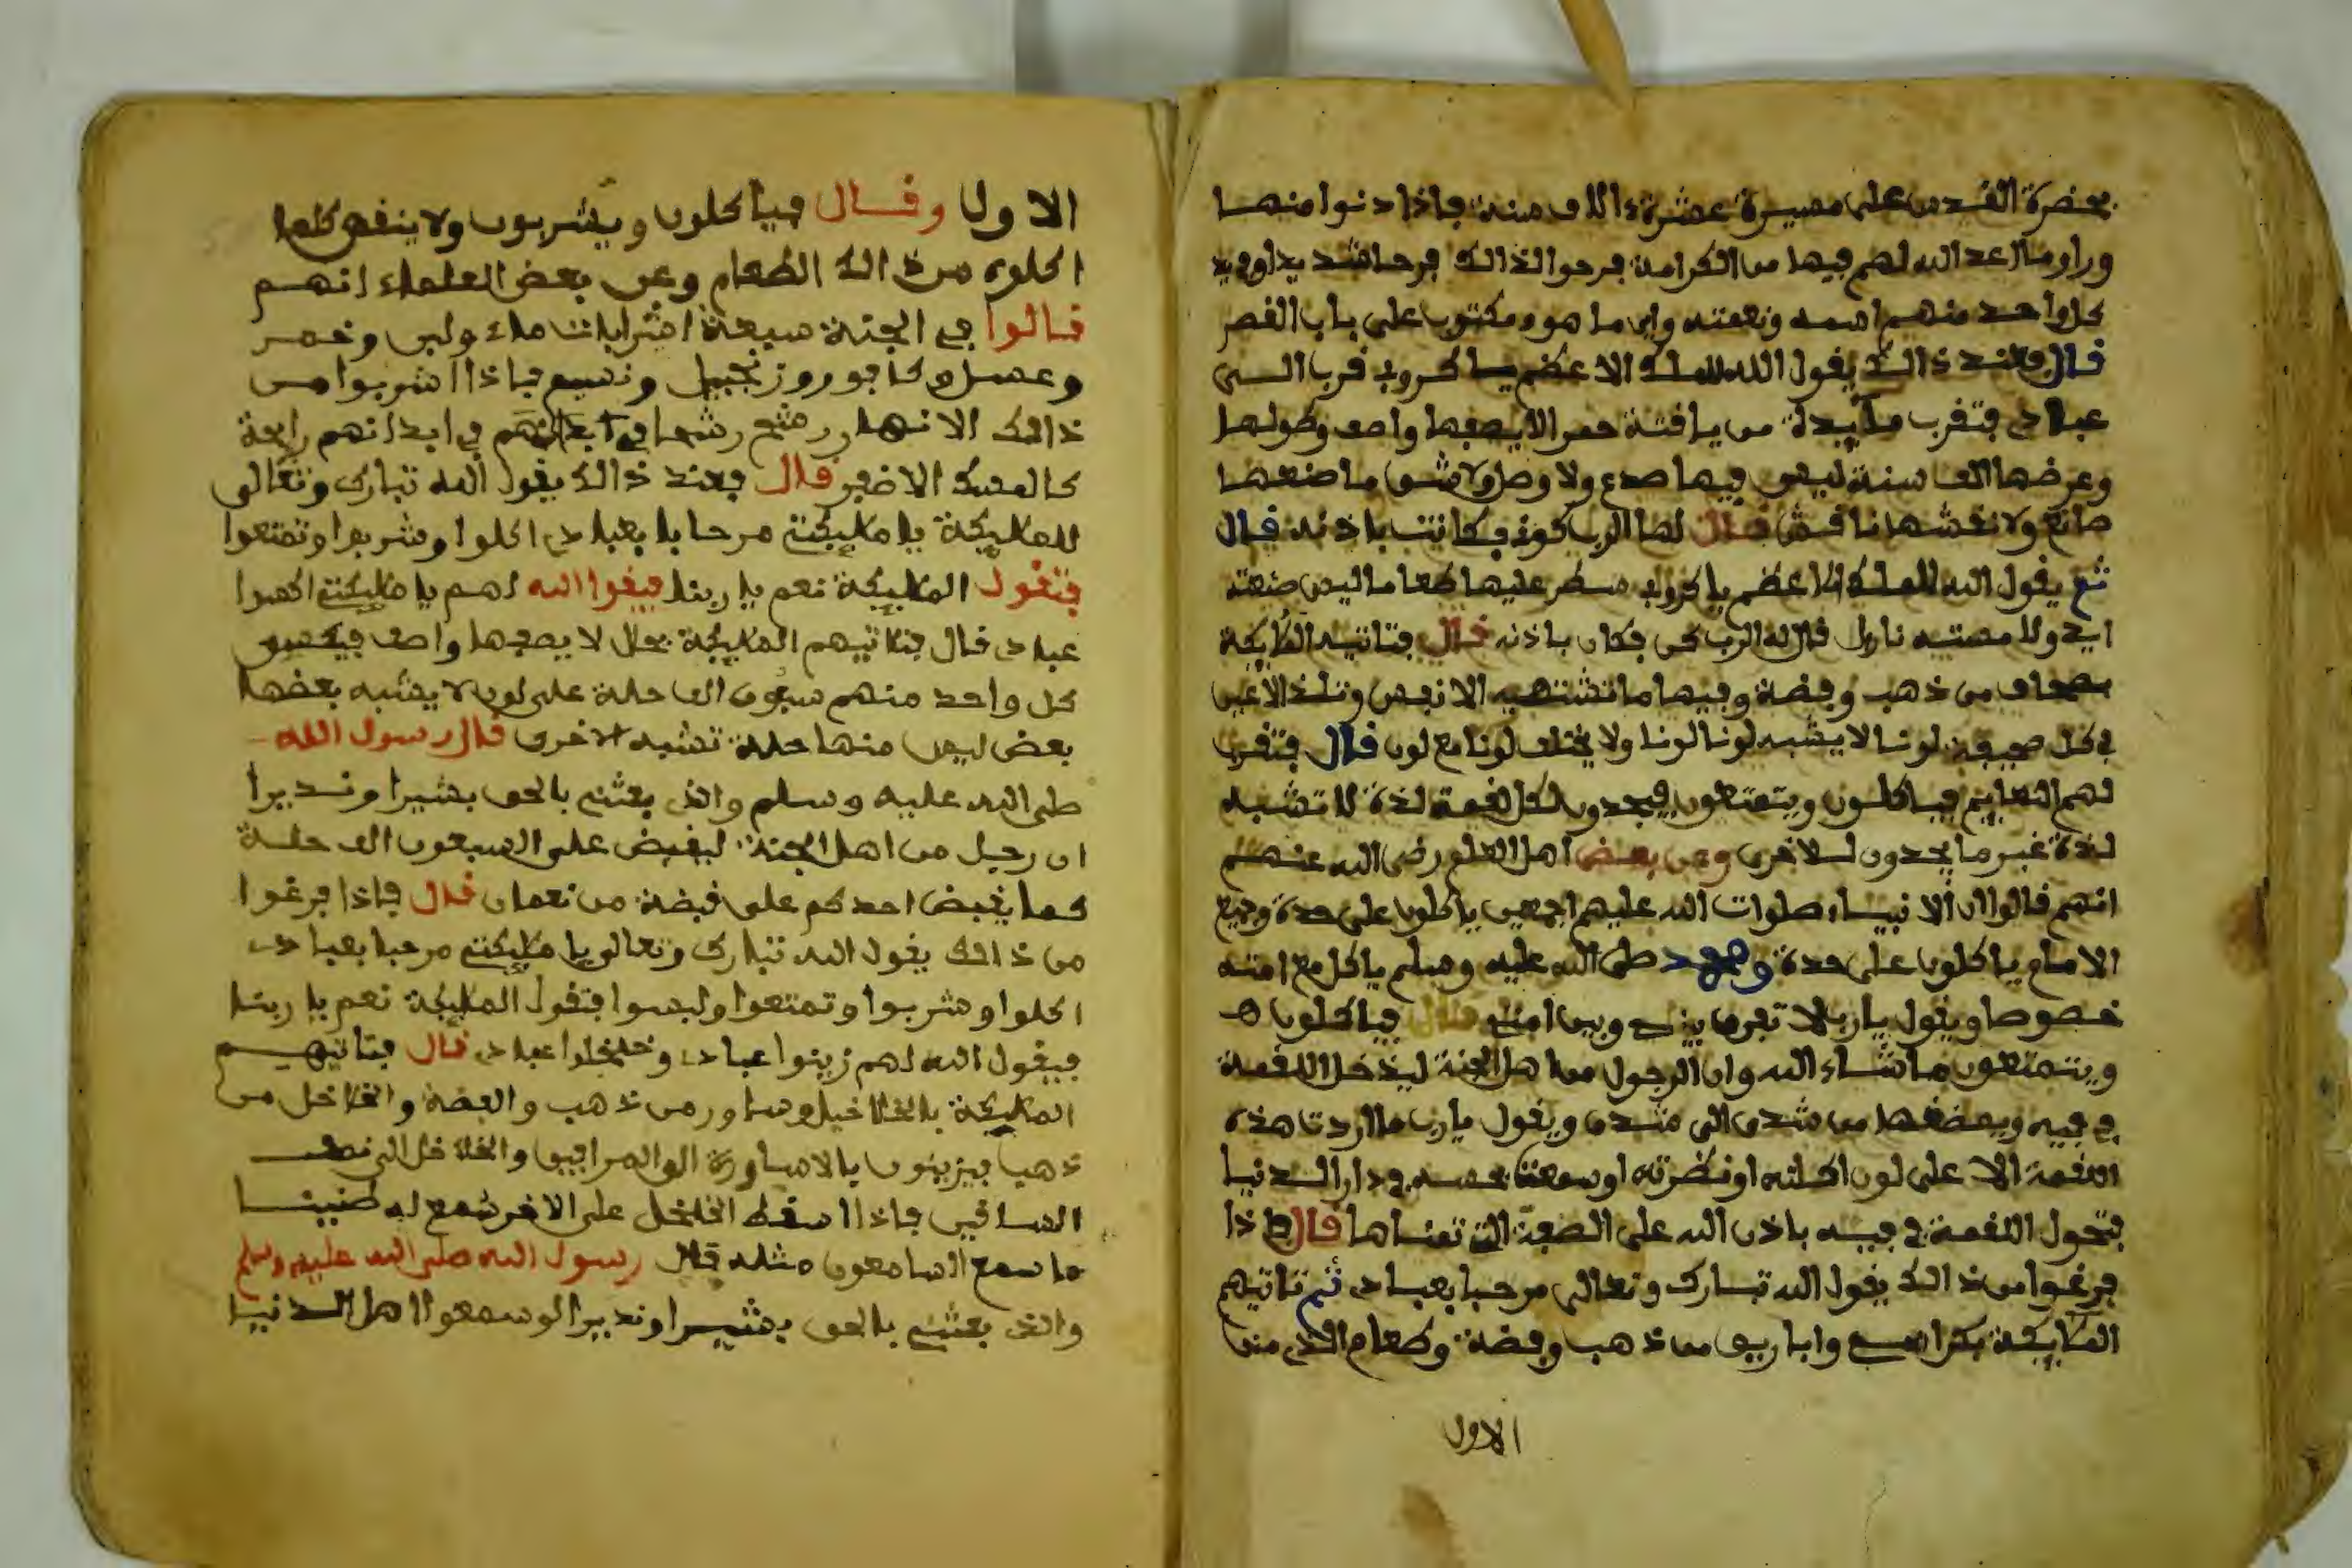 بحضرة القدس على مسيرة عشرة ءالاف سنة فاذا دنوا منها
وراوا ما اعد الله لهم فيها من الكرامة فرحوا لذالك فرحا شديدا ويجد
كل واحد منهم اسمه ونعمته واين ما هو ومكتوب على باب القصر
قال فعند ذالك يقول الله للملك الاعظم يا كروب قرب الى
عبادى فتقرب مآييدة من ياقتة حمرا لا يصفها واصف وطولها
وعرضها الف سنة ليس فيها صدع ولا وصل ولا شق ما صنعها
صانع ولا نقشها ناقش قال لها الرب كون فكانت باذنه قال
ثم يقول الله للملك الاعظم يا كروب سطر عليها طعاما ليس صنعته
ايد ولا مسته نار بل قال له الرب كن فكان باذنه قال فتاتيه الملايكة
بصحاف من ذهب وفضة وفيها ما تشتهيه الانفس وتلذ الاعين
في كل صحيفة لونا لا يشبه لونا لونا ولا يختلف لونا مع لون قال فتقرب
لهم الطعايم فياكلون ويتمتعون فيجدون لكل لقمة لذة لا تشبه
لذة غير ما يجدون للاخرى وعن بعض اهل العلم رضى الله عنهم
انهم قالوا ان الانبياء صلوات الله عليهم اجمعين ياكلون على حدة وجميع
الامام ياكلون على حدة ومحمد صلى الله عليه وسلم ياكل مع امته
خصوصا ويقول يا رب لا تفرق بينى وبين امتى قال فياكلون
ويتمتعون ما شاء الله وان الرجول من اهل الجنة ليدخل اللقمة
في فيه ويمضغها من شدق الى شدق ويقول يا رب ما اردت هذه
اللقمة الا على لون اكلته او نظرته او سمعت بحسه في دار الدنيا
فتحول اللقمة في فيه باذن الله على الصفة التى تمناها قال فاذا
فرغوا من ذالك يقول الله تبارك وتعالى مرحبا بعبادى ثم تاتيهم
الملايكة بكراسى واباريق من ذهب وفضة وطعام الذى من
الاول
الاول وقال فياكلون ويشربون ولا ينقص كلما
اكلوه من ذالك الطعام وعن بعض العلماء انهم
قالوا في الجنة سبعة اشرابات ماء ولبن وخمر
وعسل وكافور وزنجبيل ونسيم فاذا اشربوا من
ذالك الانهار رشح رشحا في ابدانهم في ابدانهم رايحة
كالمسك الاذفر قال فعند ذالك يقول الله تبارك وتعالى
للمليكة يا مليكتى مرحابا بعبادى اكلوا وشربوا وتمتعوا
فتقول المليكة نعم يا ربنا فيقوا الله لهم يا مليكتى اكسوا
عبادى قال فتاتيهم المليكة بحلل لا يصفها واصف فيكسى
كل واحد منهم سبعون الف حلة على لون لا يشبه بعضها
بعض ليس منها حلة تشبه الاخرى قال رسول الله
صلى الله عليه وسلم والذى بعثنى بالحق بشيرا ونديرا
ان رجيل من اهل الجنة ليقبض على السبعون الف حلة
كما يقبض احدكم على قبضة من نعمان قال فاذا فرغوا
من ذالك يقول الله تبارك وتعالى يا مليكتى مرحبا بعبادى
اكلوا وشربوا وتمتعوا ولبسوا فتقول المليكة نعم يا ربنا
فيقول الله لهم زينوا عبادى وخلخلوا عبادى قال فتاتيهم
المليكة بالخلاخيل وساور من ذهب والفضة والخلاخل من
ذهب فيزينون بالاساورة الى المرافيق والخلاخل الى نصف
الساقين فاذا اسقط الخلخل على الاخر سمع له طنينا
ما سمع السامعون مثله قال رسول الله صلى الله عليه وسلم
والذى بعثنى بالحق بشيرا ونديرا لو سمعوا اهل الدنيا